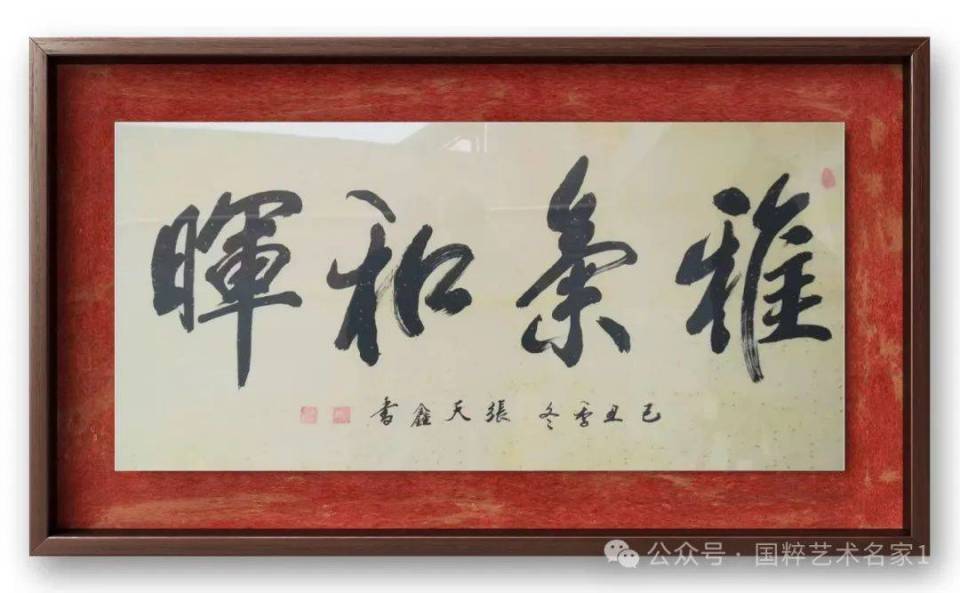 雅和暉
己丑季冬 張天鑫書
公众号 · 国粹艺术名家1